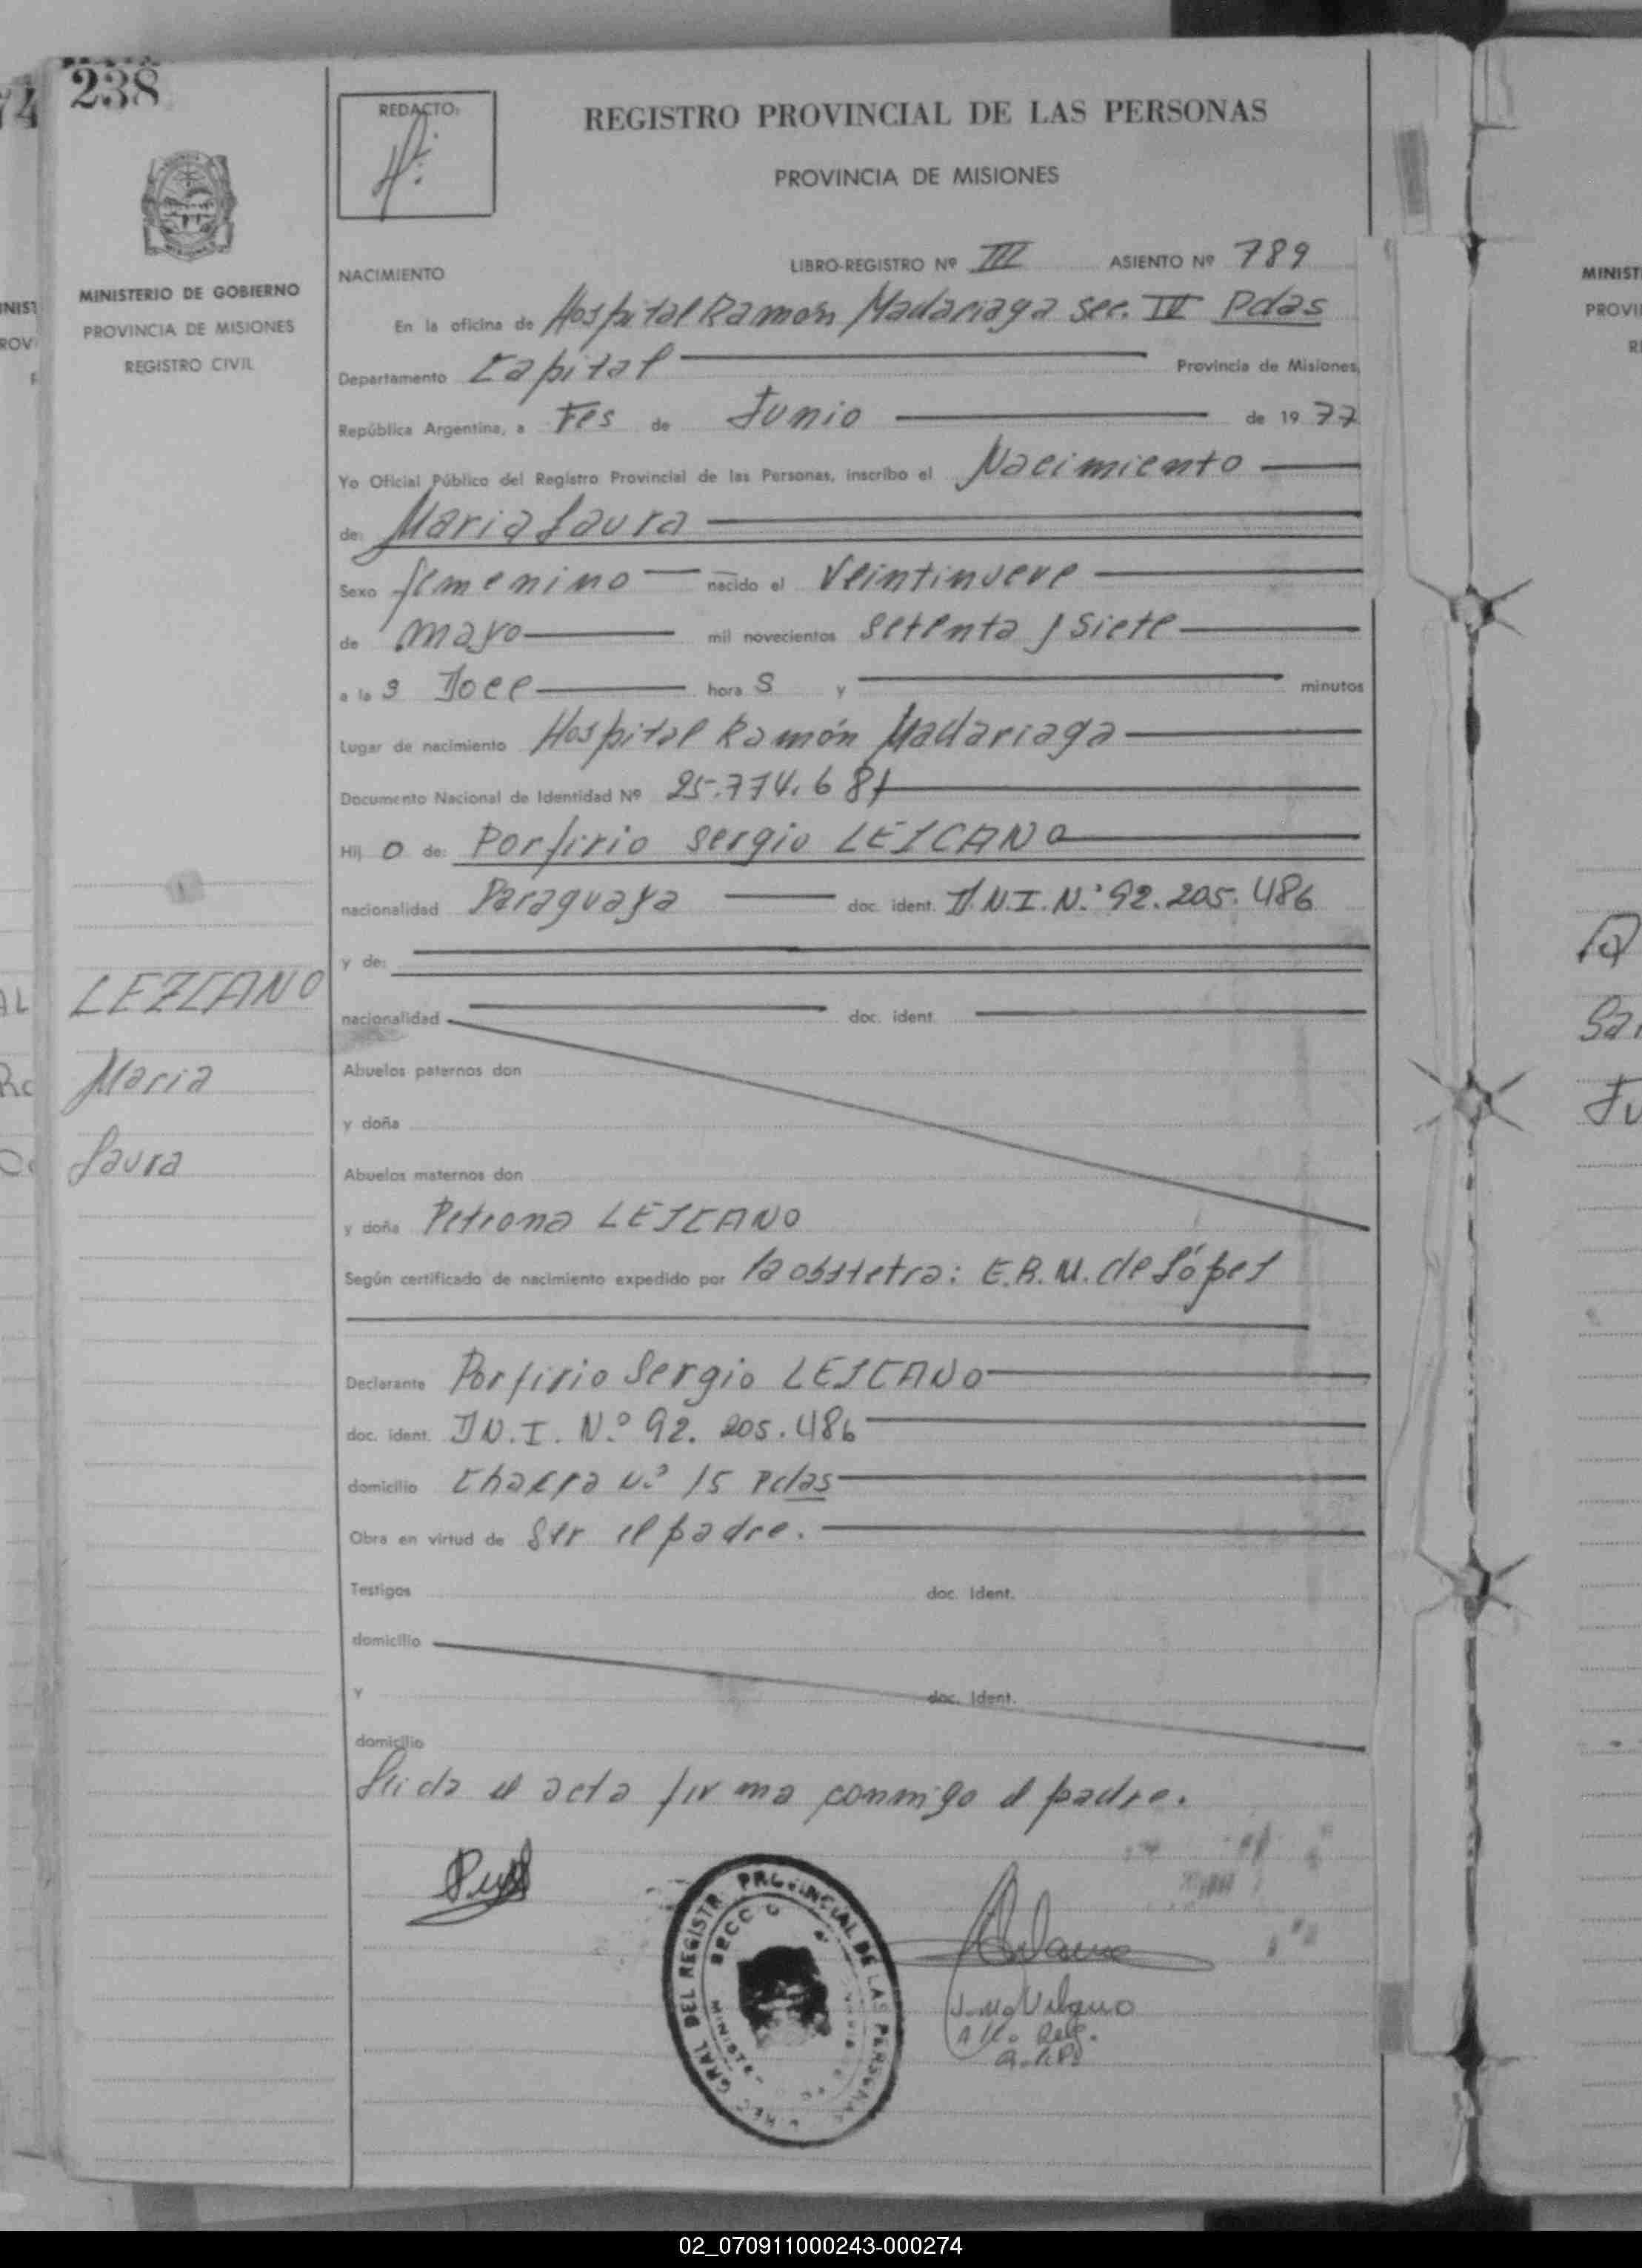 238
REDACTO:
REGISTRO PROVINCIAL DE LAS PERSONAS
PROVINCIA DE MISIONES
MINISTERIO DE GOBIERNO
PROVINCIA DE MISIONES
REGISTRO CIVIL
NACIMIENTO LIBRO-REGISTRO Nº III ASIENTO Nº 789
En la oficina de Hospital Ramón Madariaga sec. IV Pdas
Departamento Capital Provincia de Misiones,
República Argentina, a Tres de Junio de 1977
Yo Oficial Público del Registro Provincial de las Personas, inscribo el Nacimiento
de: Maria Laura
Sexo femenino nacido el Veintinueve
de mayo mil novecientos setenta y siete
a las Doce horas y minutos
Lugar de nacimiento Hospital Ramón Madariaga
Documento Nacional de Identidad Nº 25.774.681
Hijo de: Porfirio Sergio LEZCANO
nacionalidad Paraguaya doc. ident. D.N.I. N.º 92.205.486
y de:
nacionalidad doc. ident.
LEZCANO
Maria
Laura
Abuelos paternos don
y doña
Abuelos maternos don
y doña Petrona LEZCANO
Según certificado de nacimiento expedido por la obstetra: E.R.M. de López
Declarante Porfirio Sergio LEZCANO
doc. ident. D.N.I. N.º 92.205.486
domicilio Chacra N.º 15 Pdas
Obra en virtud de Ser el padre.
Testigos doc. Ident.
domicilio
Y doc. Ident.
domicilio
Leida el acta firma conmigo el padre.
GRAL DEL REGISTR PROVINCIAL DE LAS PERSONAS
02_070911000243-000274